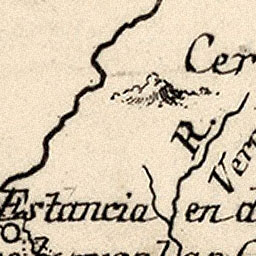 Cer
R.
Ver
Estancia en d